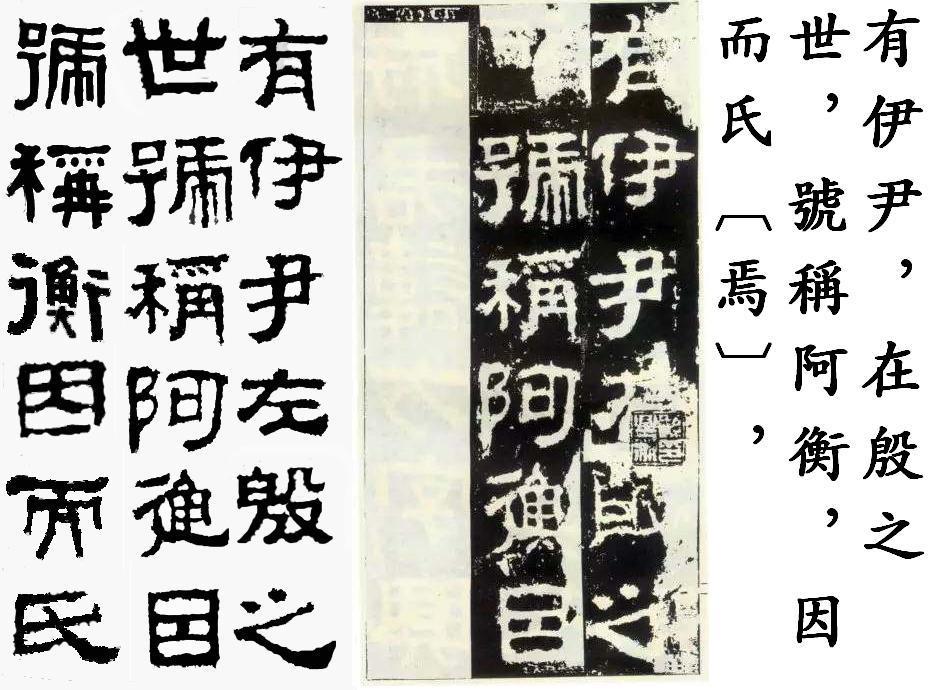 有伊尹，在殷之
世，號稱阿衡，因
而氏〔焉〕，
有伊尹殷之
號稱阿衡因
有伊尹左殷之
世號稱阿因
號稱衡因而氏